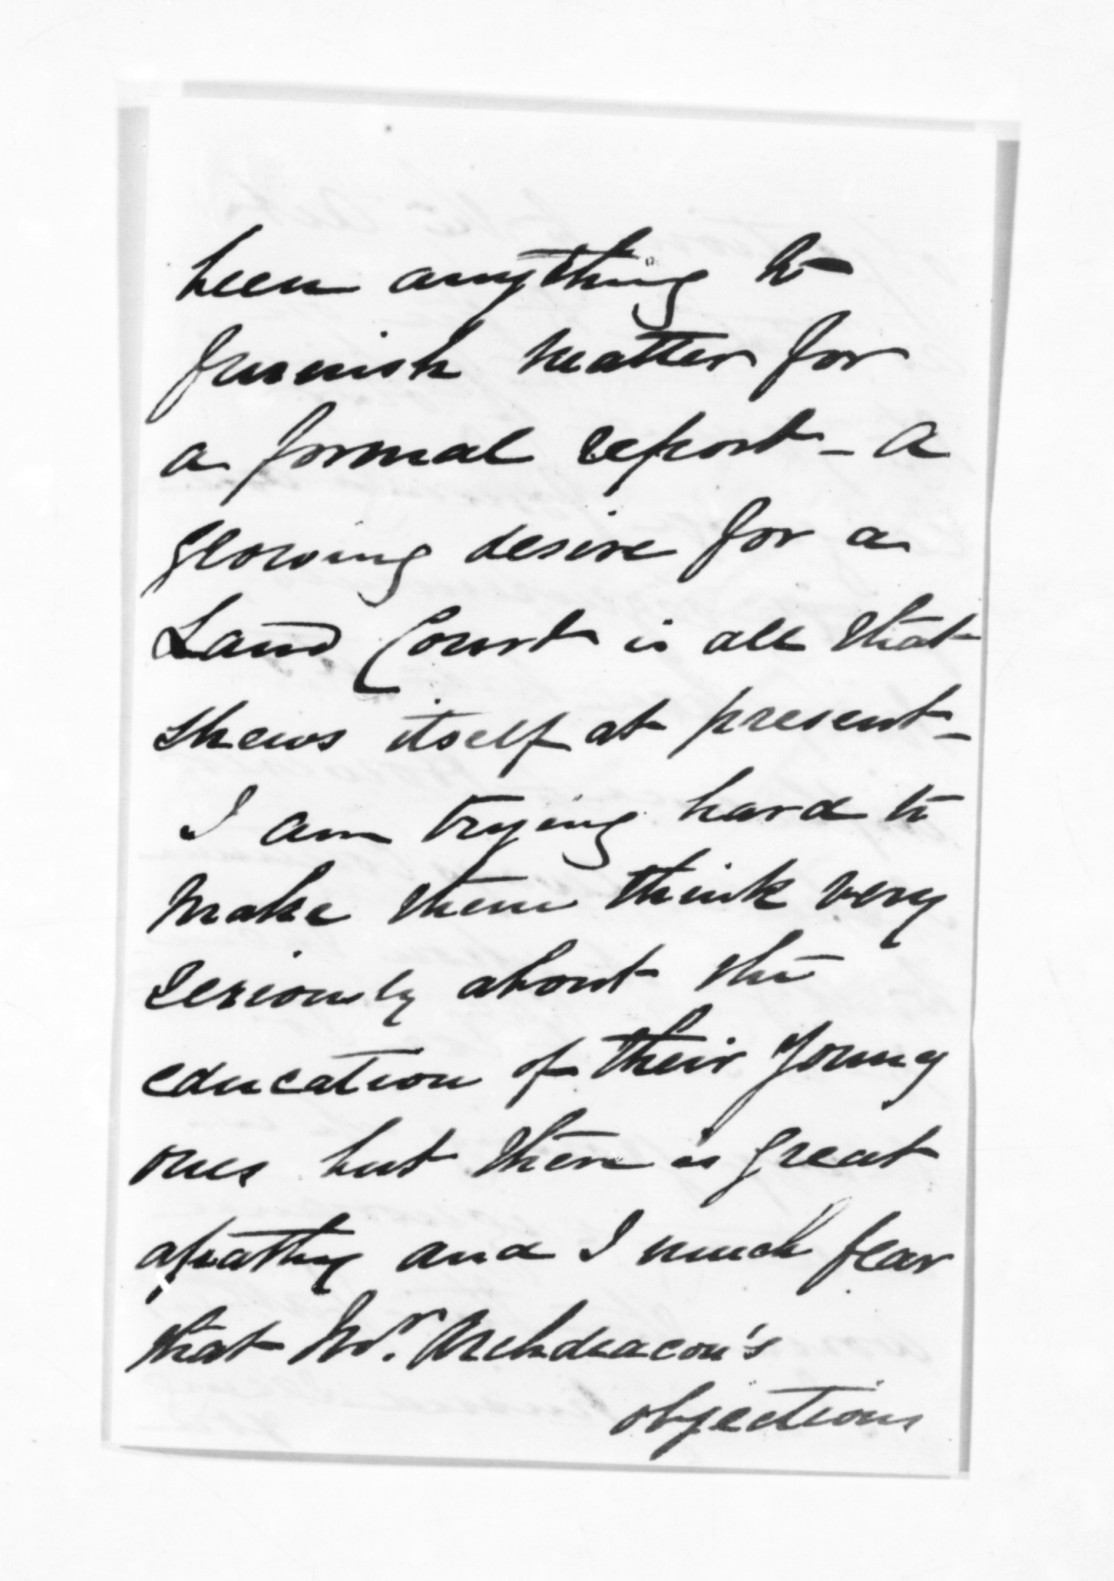 been anything to
furnish matter for
a formal report - a
growing desire for a
Land Court is all that
shews itself at present -
I am trying hard to
make them think very
seriously about the
education of their young
ones but there is great
apathy and I much fear
that Mr. Archdeacon's
objections